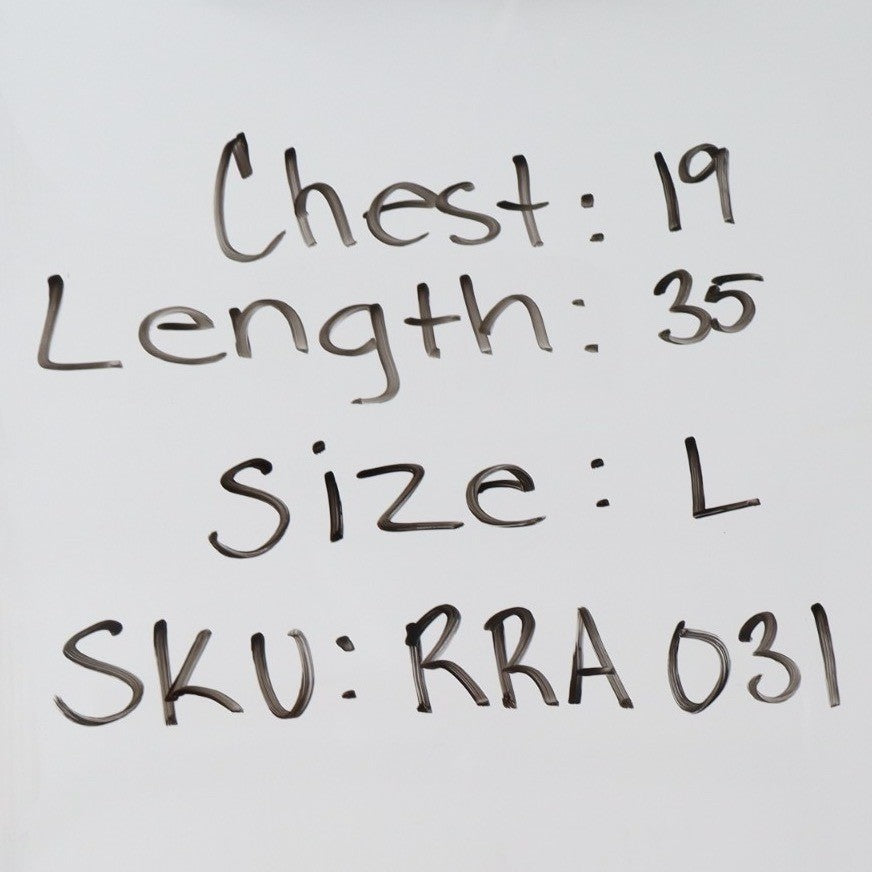 Chest: 19
Length: 35
Size: L
SKU: RRA 031